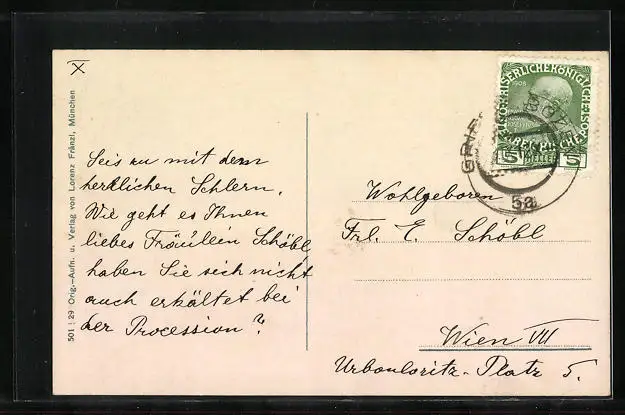 X
Seis zu mit dem
herrlichen Schlern.
Wie geht es Ihnen
liebes Fräulein Schöbl
haben Sie sich nicht
auch erkältet bei
der Procession?
501 : 29 Orig.-Aufn. u. Verlag von Lorenz Fränzl, München
1908
5 HELLER 5
GRIES
BOZEN
5a
Wohlgeboren
Frl. E. Schöbl
Wien VII
Urbanloritz-Platz 5.